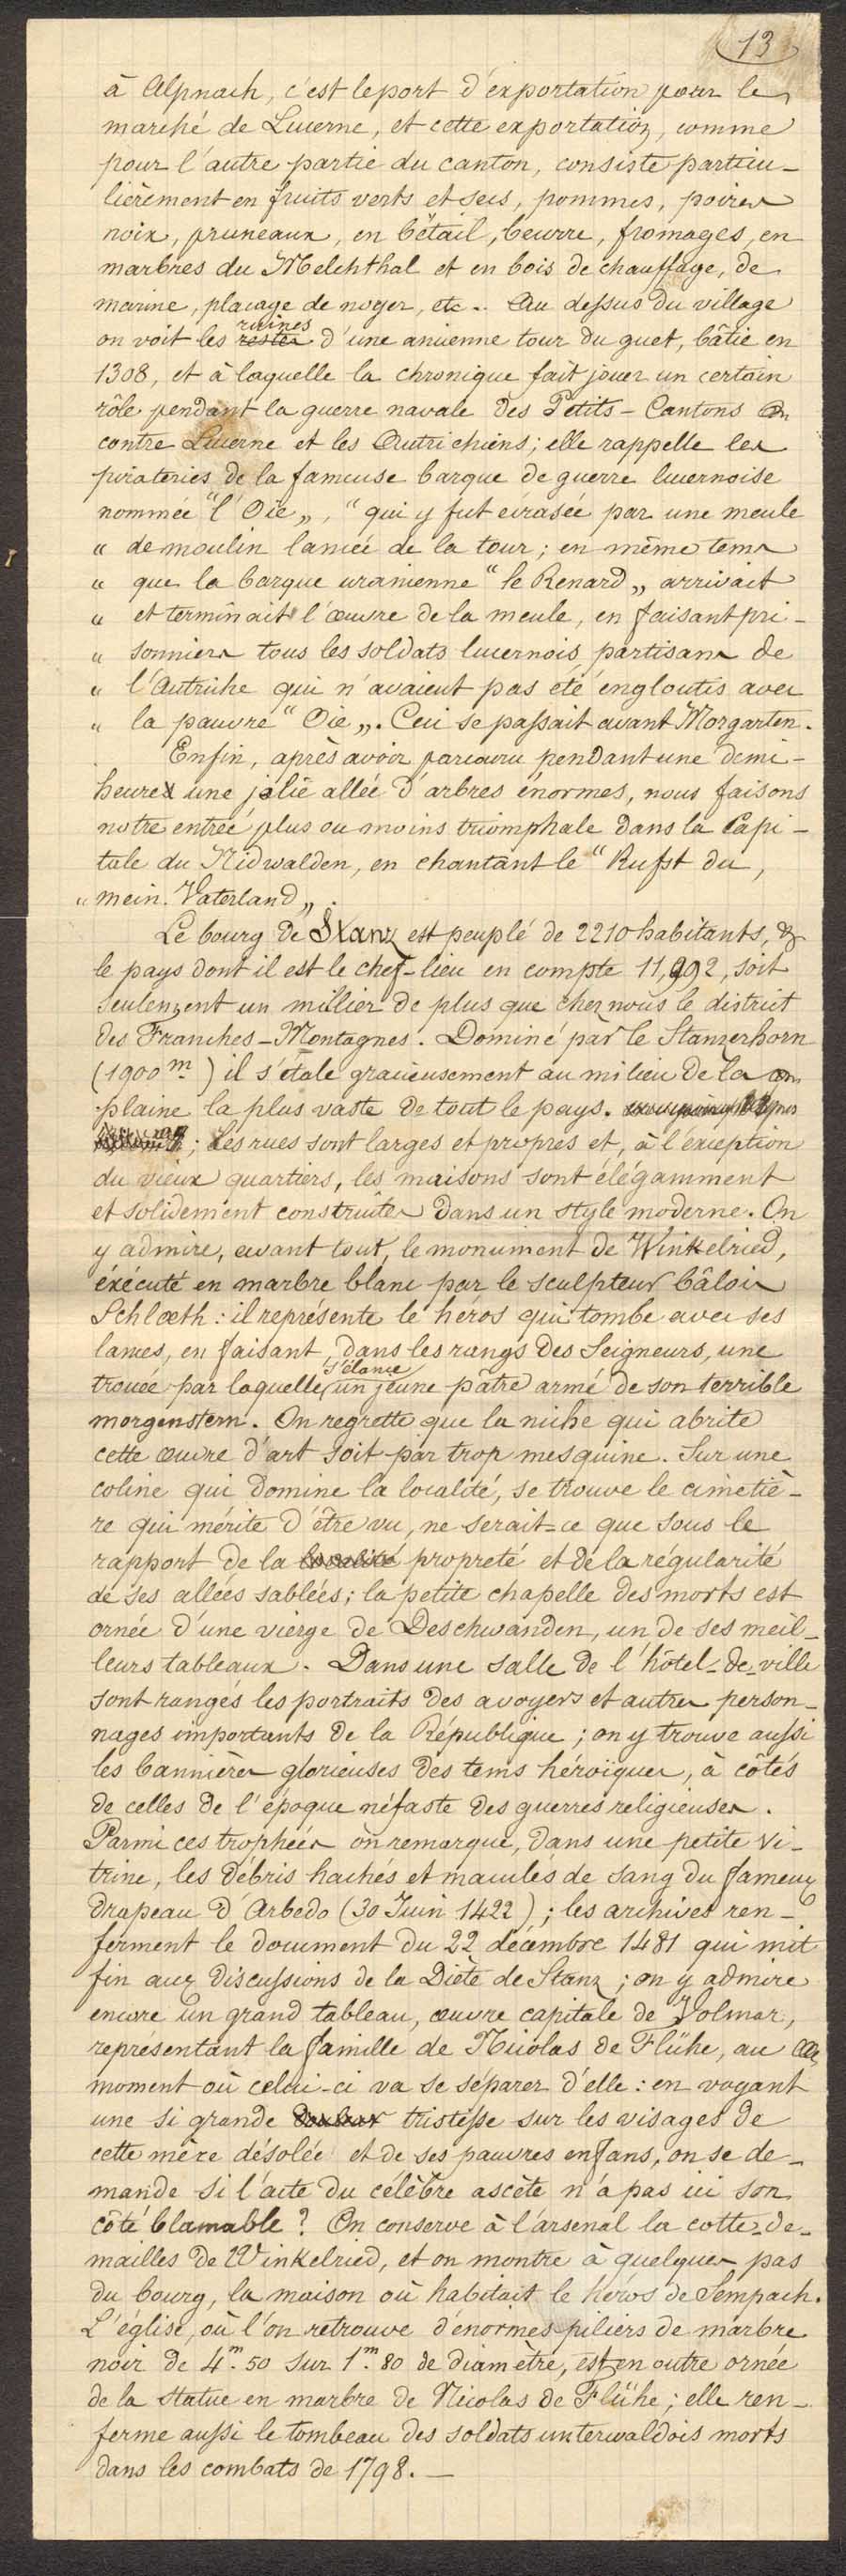 13
à Alpnach, c'est le port d'exportation pour le
marché de Lucerne, et cette exportation, comme
pour l'autre partie du canton, consiste particu-
lièrement en fruits verts et secs, pommes, poires
noix, pruneaux, en bétail, beurre, fromages, en
marbres du Melchthal et en bois de chauffage, de
marine, placage de noyer, etc.. Au dessus du village
on voit les restes ruines d'une ancienne tour du guet, bâtie en
1308, et à laquelle la chronique fait jouer un certain
rôle pendant la guerre navale des Petits-Cantons
contre Lucerne et les Autrichiens; elle rappelle les
pirateries de la fameuse barque de guerre lucernoise
nommée "l'Oie„, "qui y fut écrasée par une meule
" de moulin lancée de la tour; en même tems
" que la barque uranienne "le Renard„ arrivait
" et terminait l'œuvre de la meule, en faisant pri-
" sonniers tous les soldats lucernois partisans de
" l'Autriche qui n'avaient pas été engloutis avec
" la pauvre "Oie„. Ceci se passait avant Morgarten.
Enfin, après avoir parcouru pendant une demi-
heure une jolie allée d'arbres énormes, nous faisons
notre entrée plus ou moins triomphale dans la Capi-
tale du Nidwalden, en chantant le "Rufst du,
"mein Vaterland„.
Le bourg de Stanz est peuplé de 2210 habitants, &
le pays dont il est le chef-lieu en compte 11,992, soit
seulement un millier de plus que chez nous le district
des Franches-Montagnes. Dominé par le Stanzerhorn
(1900 m) il s'étale gracieusement au milieu de la
plaine la plus vaste de tout le pays.
; Les rues sont larges et propres et, à l'exception
du vieux quartiers, les maisons sont élégamment
et solidement construites dans un style moderne. On
y admire, avant tout, le monument de Winkelried,
éxécuté en marbre blanc par le sculpteur bâlois
Schlœth: il représente le héros qui tombe avec ses
lances, en faisant, dans les rangs des Seigneurs, une
trouée par laquelle s'élance un jeune pâtre armé de son terrible
morgenstern. On regrette que la niche qui abrite
cette œuvre d'art soit par trop mesquine. Sur une
coline qui domine la localité, se trouve le cimetiè-
re qui mérite d'être vu, ne serait-ce que sous le
rapport de la localité propreté et de la régularité
de ses allées sablées; la petite chapelle des morts est
ornée d'une vierge de Deschwanden, un de ses meil-
leurs tableaux. Dans une salle de l'hôtel-de-ville
sont rangés les portraits des avoyers et autres person-
nages importants de la République; on y trouve aussi
les bannières glorieuses des tems héroïques, à côtés
de celles de l'époque néfaste des guerres religieuses.
Parmi ces trophées on remarque, dans une petite vi-
trine, les débris hachés et maculés de sang du fameux
drapeau d'Arbedo (30 Juin 1422); les archives ren-
ferment le document du 22 décembre 1481 qui mit
fin aux discussions de la Diète de Stanz; on y admire
encore un grand tableau, œuvre capitale de Volmar,
représentant la famille de Nicolas de Flühe, au
moment où celui-ci va se séparer d'elle: en voyant
une si grande douleur tristesse sur les visages de
cette mère désolée et de ses pauvres enfans, on se de-
mande si l'acte du célèbre ascète n'a pas ici son
côté blamable? On conserve à l'arsenal la cotte-de-
mailles de Winkelried, et on montre à quelques pas
du bourg, la maison où habitait le héros de Sempach.
L'église, où l'on retrouve d'énormes piliers de marbre
noir de 4m.50 sur 1m.80 de diamètre, est en outre ornée
de la statue en marbre de Nicolas de Flühe; elle ren-
ferme aussi le tombeau des soldats unterwaldois morts
dans les combats de 1798.—